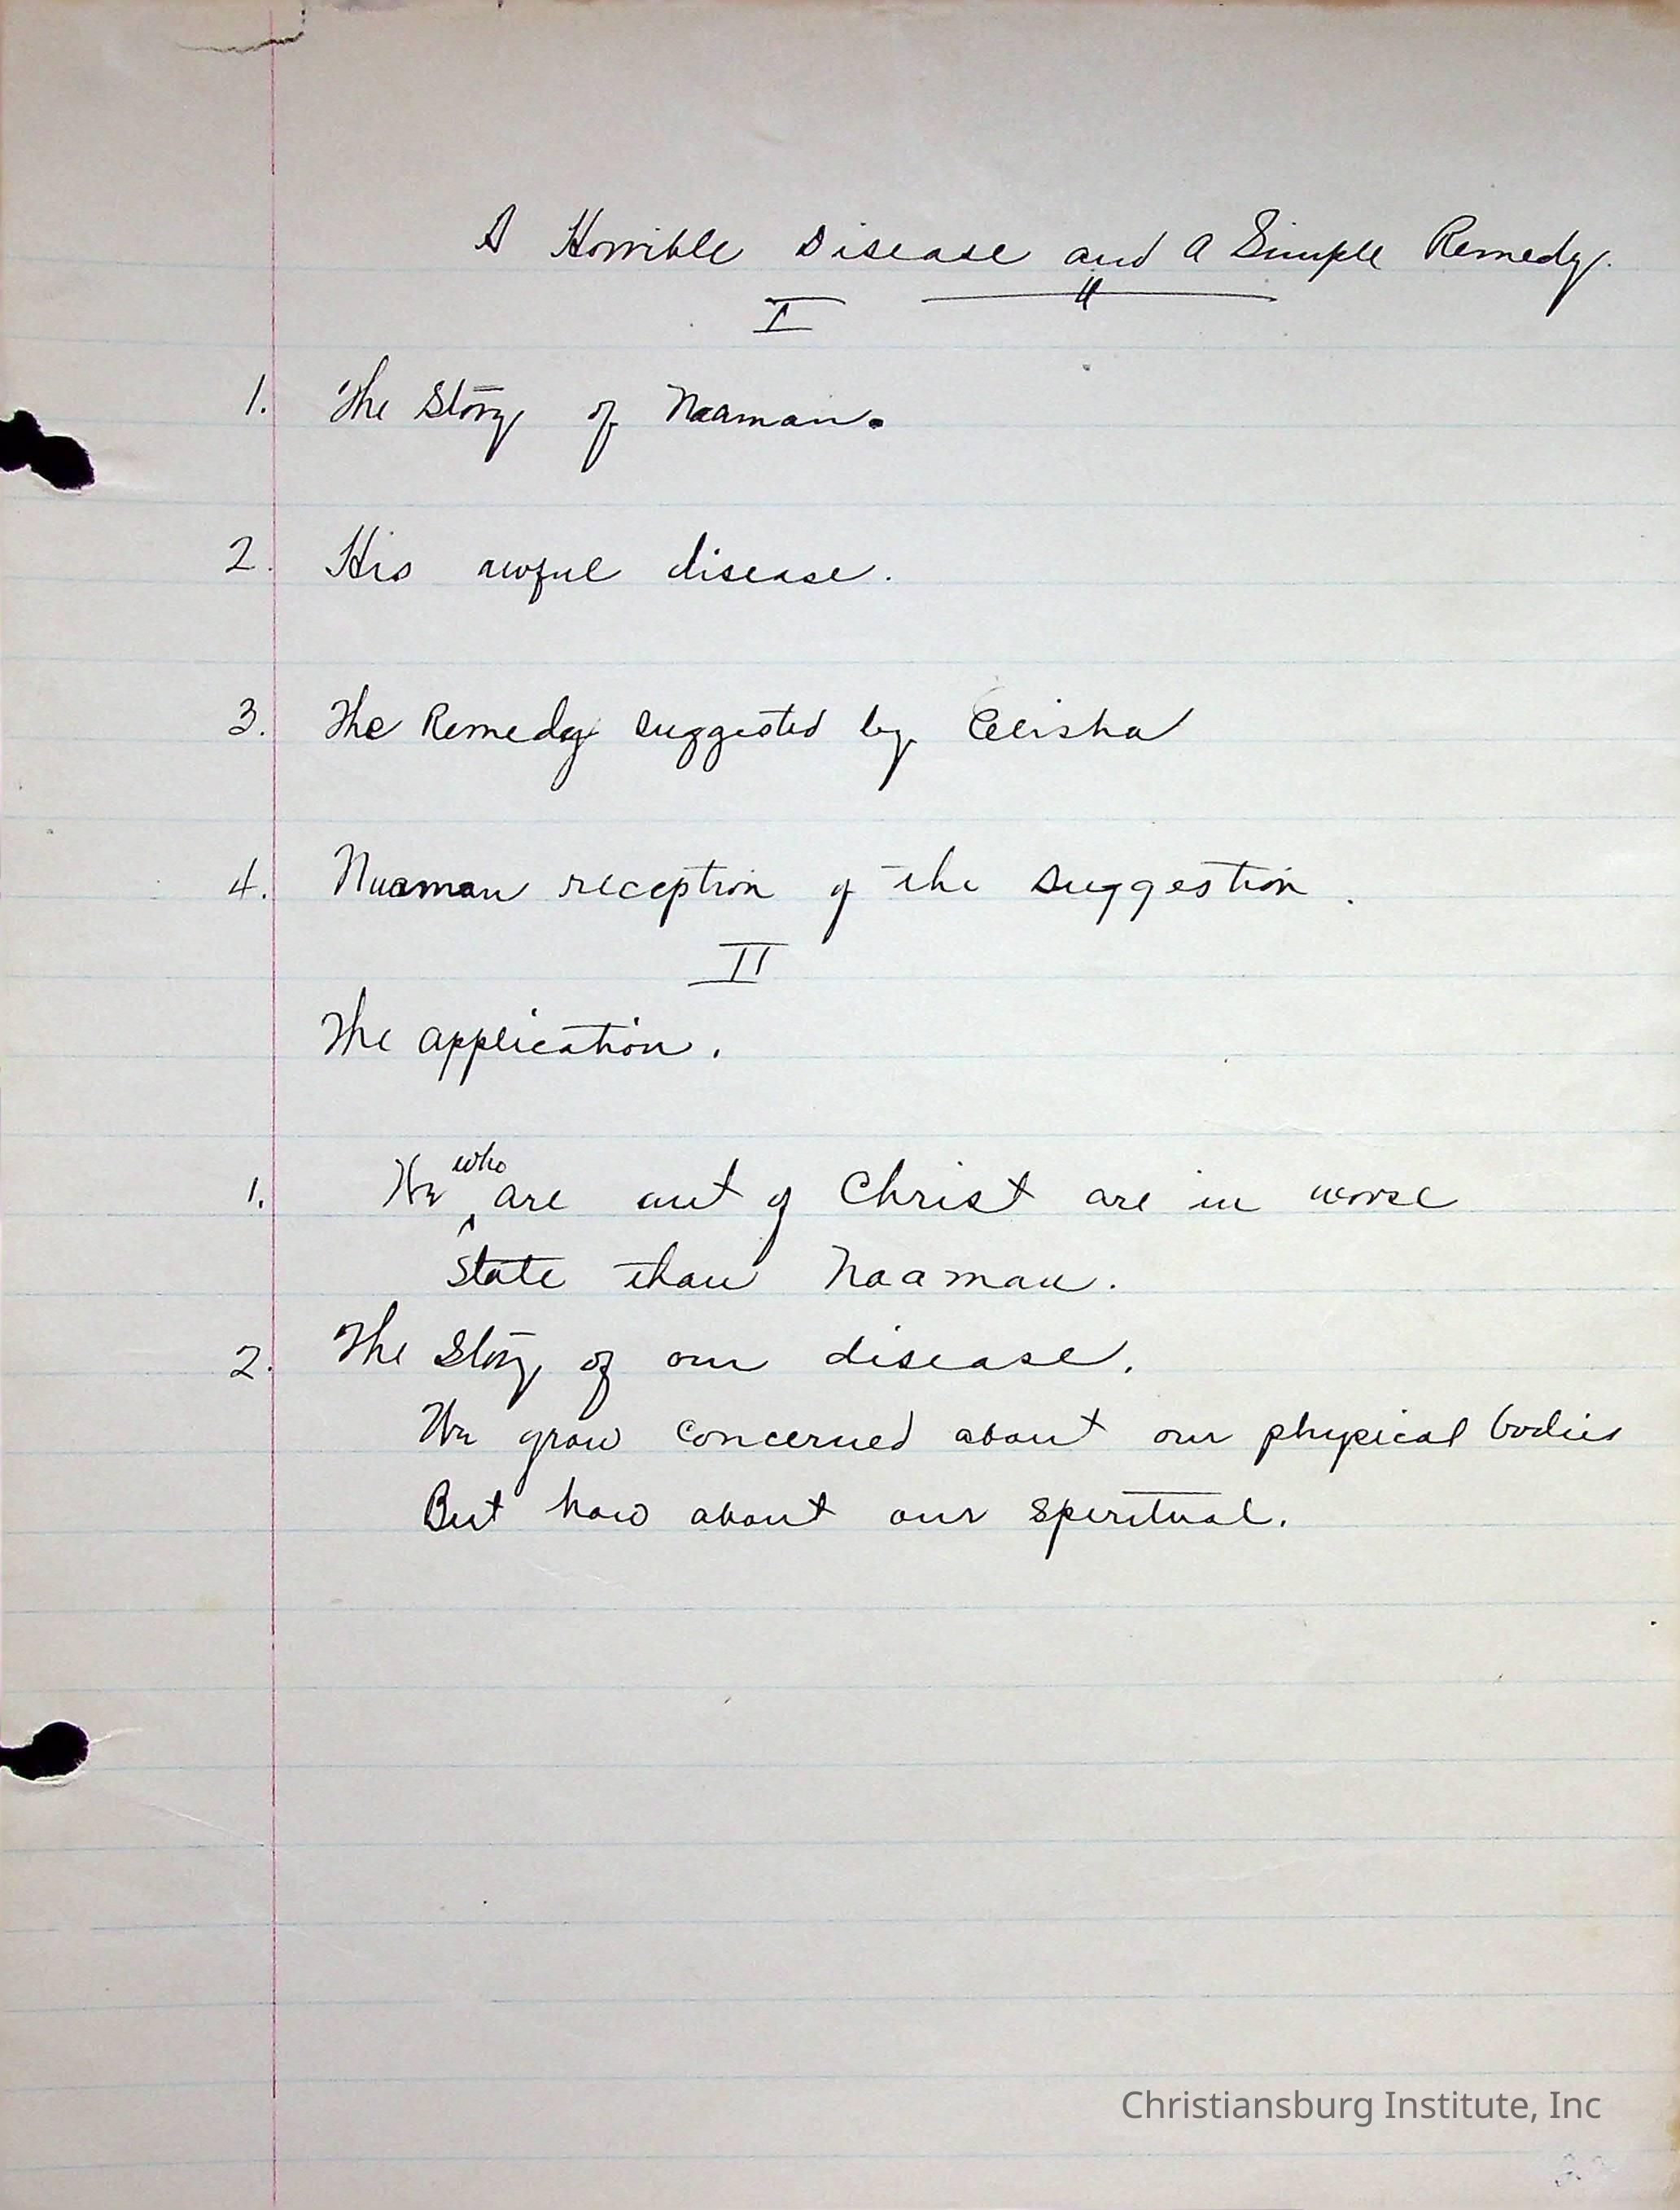 A Horrible Disease and A Simple Remedy.
I
1. The Story of Naaman.
2. His awful disease.
3. The Remedy suggested by Elisha
4. Naaman reception of the suggestion.
II
The application.
1. We who are out of Christ are in worse
state than Naaman.
2. The Story of our disease.
We grow concerned about our physical bodies
But how about our spiritual.
Christiansburg Institute, Inc